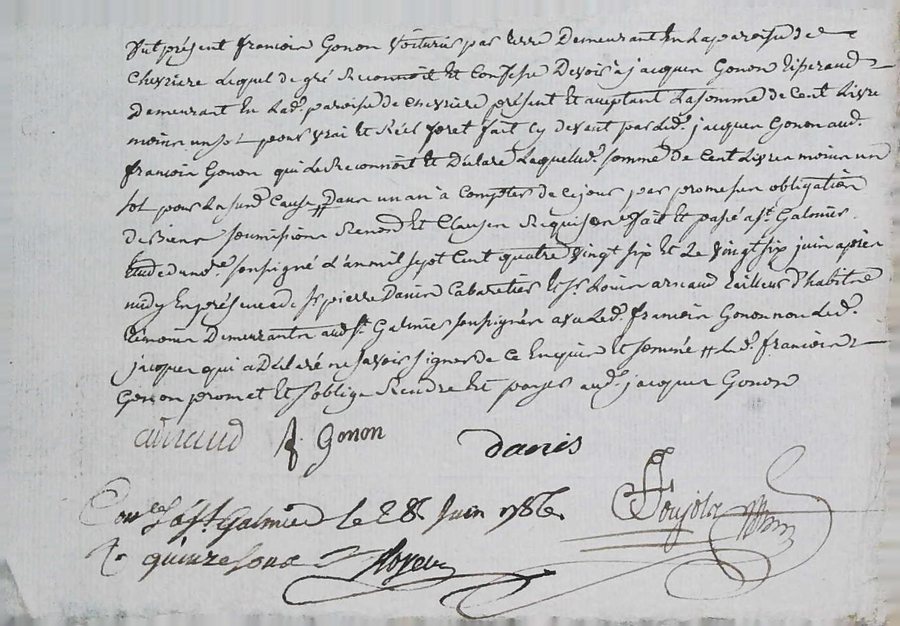 fut présent françois Gonon voiturié par terre Demeurant En la paroisse de
Chevriere Lequel de gré Reconnoit et Confesse Devoir a jacques Gonon
Demeurant En Lad. paroisse de chevriere présent Et aceptant La somme de Cent Livre
moins un sol pour vrai et Réel pret fait cy devant par Led. jacques Gonon aud.
françois Gonon qui Le Reconnoit et Déclare Laquelle d. somme de Cent Livres moins un
sol pour La susd. Cause # Dans un an à Compter de Ce jour par promesses obligation
de Biens soumissions Renond. et Clauses Requises fait et passé a st. Galmier
Etude du nore. soussigné L'an mil sept Cent quatre vingt six et Le vingt six juin apres
midy En présence de sr. pierre Danis Cabaretier et sr Louis arnaud tailleur d'habit
témoins Demeurants aud. st. Galmier soussignés avec Led. françois Gonon non Led.
jacques qui a Déclaré ne savoir signer de Ce Enquis Et sommé # L.d. françois
Gonon promet Et s'oblige Rendre Et payer aud. jacques Gonon
arnaud f. Gonon danis
Conlé a st. Galmier le 28 Juin 1786
R quinze sous